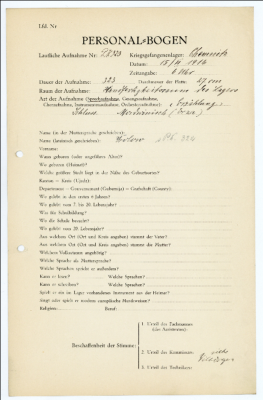 Lfd. Nr
PERSONAL-BOGEN
Lautliche Aufnahme Nr.:
Kriegsgefangenenlager: Chemnitz
Datum:
Zeitangabe: 6 Uhr
Dauer der Aufnahme:
Durchmesser der Platte: 27 cm
Raum der Aufnahme: des Lagers
Art der Aufnahme (Sprechaufnahme, Gesangsaufnahme,
Choraufnahme, Instrumentenaufnahme, Orchesteraufnahme): Erzählung
Name (in der Muttersprache geschrieben):
Name (lateinisch geschrieben):
Vorname:
Wann geboren (oder ungefähres Alter)?
Wo geboren (Heimat)?
Welche größere Stadt liegt in der Nähe des Geburtsortes?
Kanton — Kreis (Ujedz):
Department — Gouvernement (Gubernija) — Grafschaft (County):
Wo gelebt in den ersten 6 Jahren?
Wo gelebt vom 7. bis 20. Lebensjahr?
Was für Schulbildung?
Wo die Schule besucht?
Wo gelebt vom 20. Lebensjahr?
Aus welchem Ort (Ort und Kreis angeben) stammt der Vater?
Aus welchem Ort (Ort und Kreis angeben) stammt die Mutter?
Welchem Volksstamm angehörig?
Welche Sprache als Muttersprache?
Welche Sprachen spricht er außerdem?
Kann er lesen? Welche Sprachen?
Kann er schreiben? Welche Sprachen?
Spielt er ein im Lager vorhandenes Instrument aus der Heimat?
Singt oder spielt er moderne europäische Musikweisen?
Religion: Beruf:
Beschaffenheit der Stimme:
1. Urteil des Fachmannes
(des Assistenten):
2. Urteil des Kommissars:
3. Urteil des Technikers: